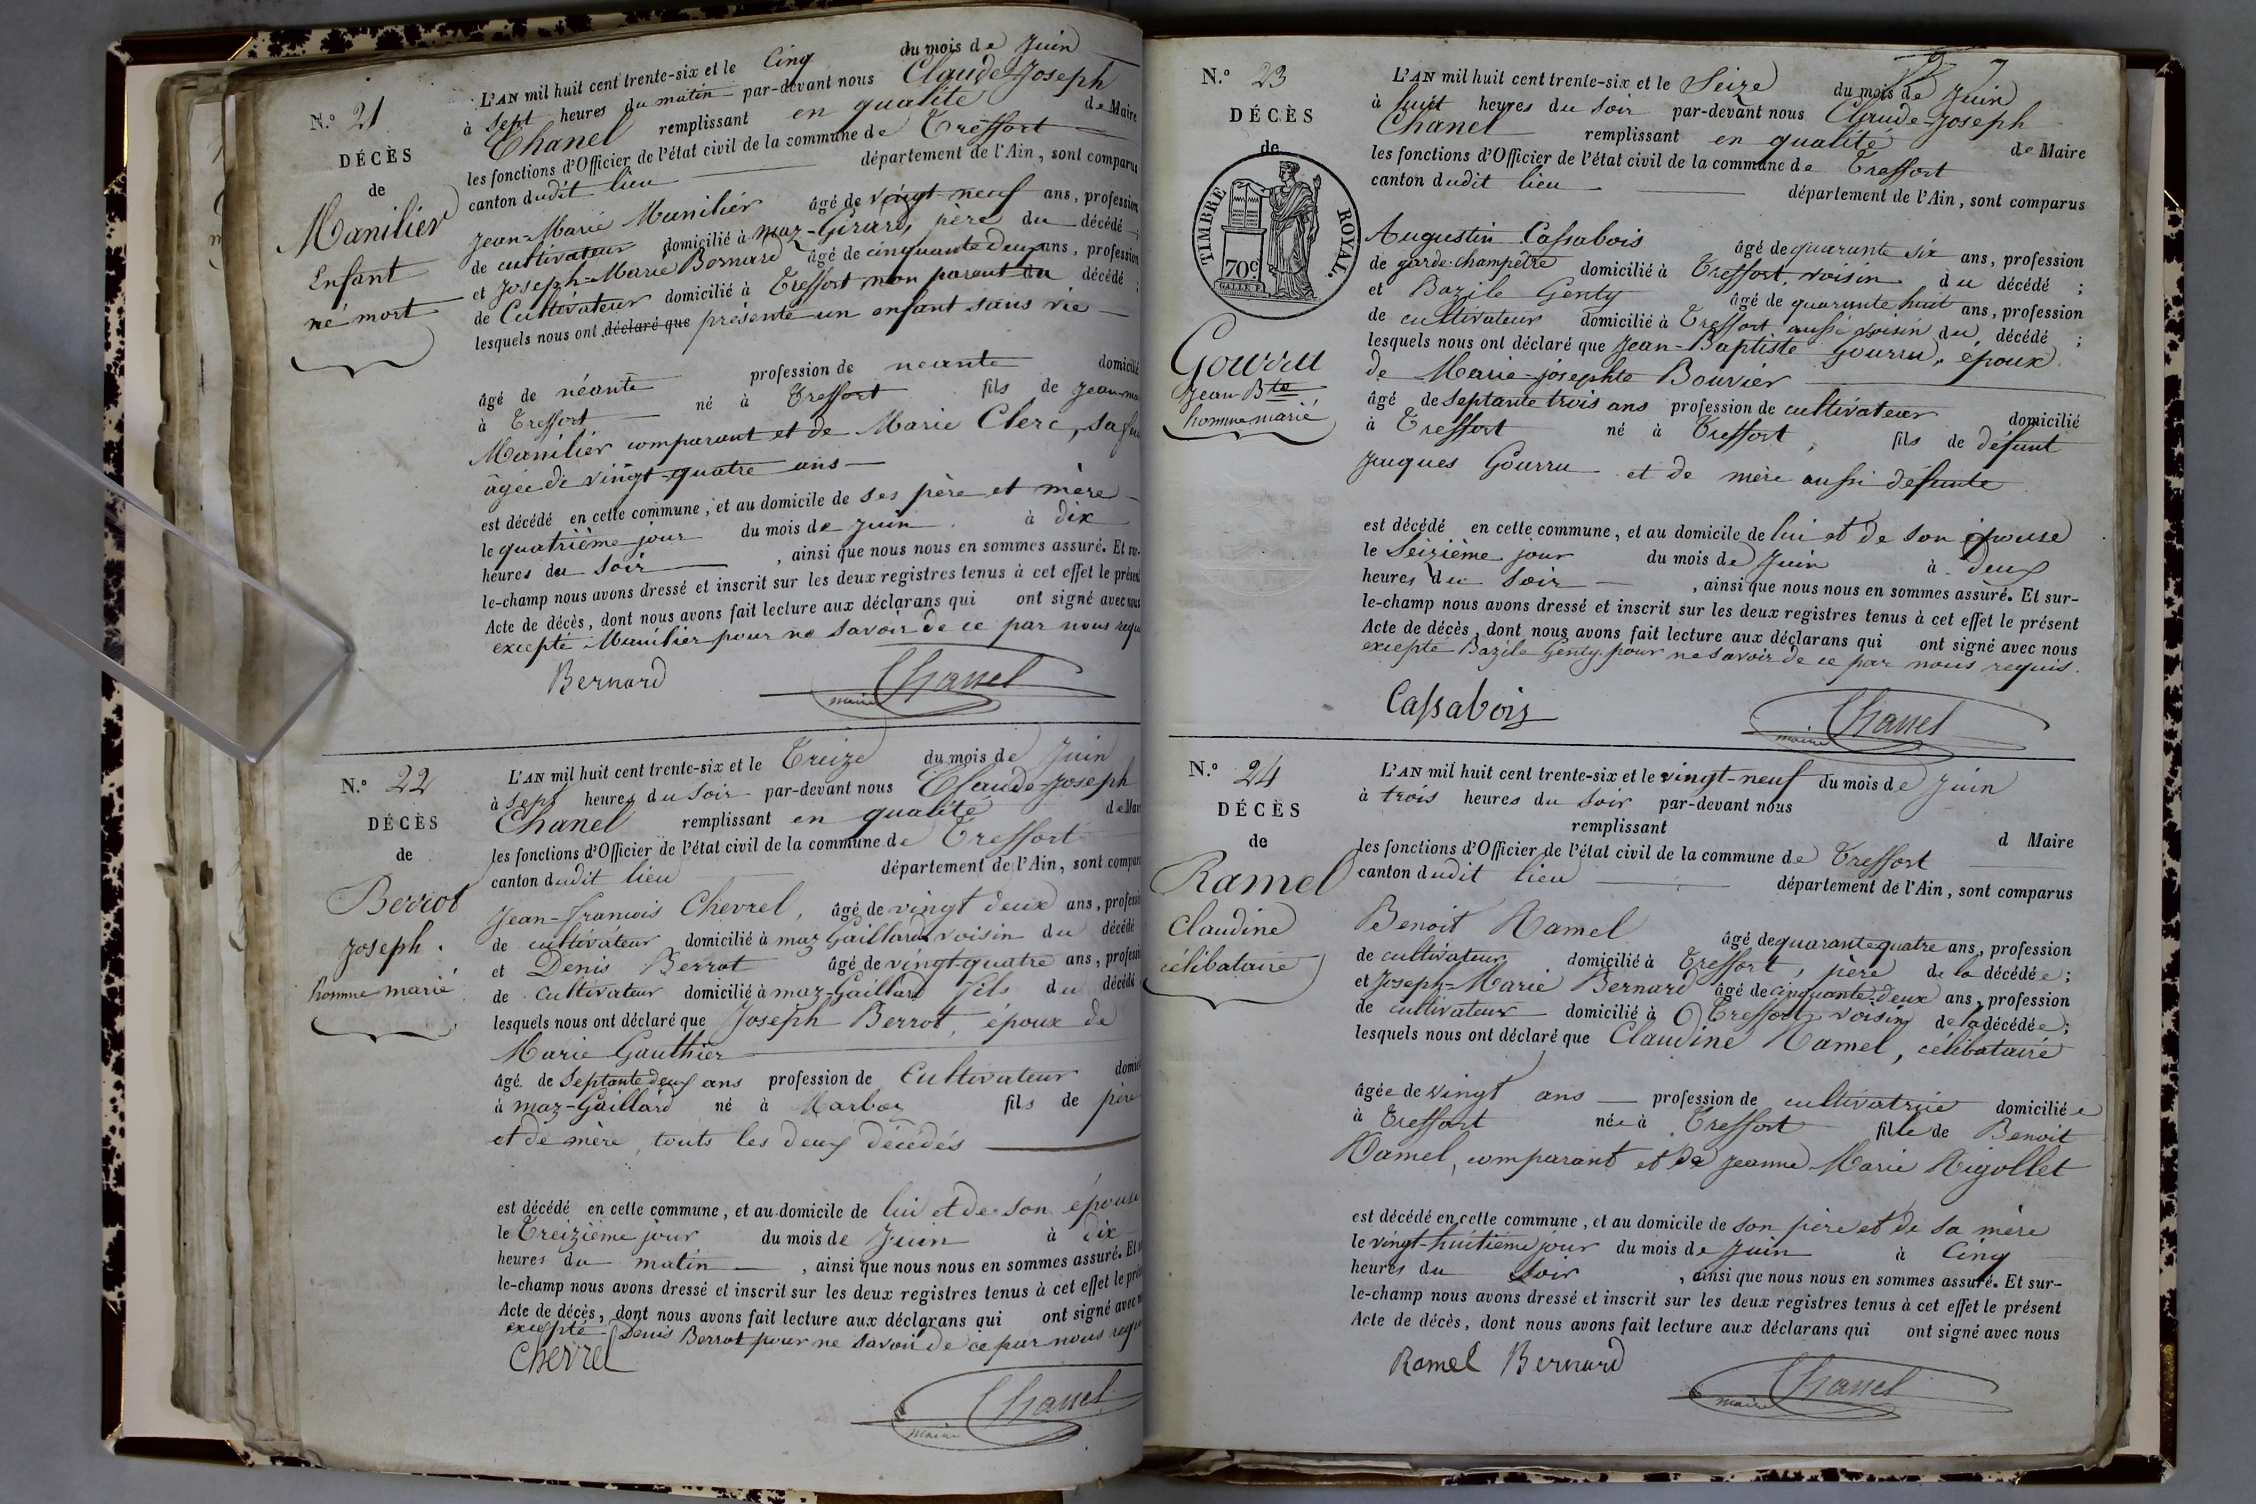 N.° 21
DÉCÈS
de
Manilier
Enfant
né mort
L'AN mil huit cent trente-six et le Cinq du mois de Juin
à sept heures du matin par-devant nous Claude-Joseph
Chanel remplissant en qualité de Maire
les fonctions d'Officier de l'état civil de la commune de Treffort
canton dudit lieu département de l'Ain, sont comparus
Jean-Marie Manilier âgé de vingt-neuf ans, profession
de cultivateur domicilié à maz-Girard, père du décédé ;
et Joseph-Marie Bernard âgé de cinquante deux ans, profession
de Cultivateur domicilié à Treffort non parent du décédé ;
lesquels nous ont déclaré que présenté un enfant sans vie
âgé de néante profession de néante domicilié
à Treffort né à Treffort fils de Jean-marie
Manilier comparant et de Marie Clerc, sa
âgée de vingt-quatre ans
est décédé en cette commune, et au domicile de ses père et mère
le quatrième jour du mois de Juin à dix
heures du soir, ainsi que nous nous en sommes assuré. Et sur-
le-champ nous avons dressé et inscrit sur les deux registres tenus à cet effet le présent
Acte de décès, dont nous avons fait lecture aux déclarans qui ont signé avec nous
excepté Manilier pour ne savoir de ce par nous requis
Bernard Chanel
maire
N.° 22
DÉCÈS
de
Berrot
Joseph.
homme marié
L'AN mil huit cent trente-six et le Treize du mois de Juin
à sept heures du soir par-devant nous Claude-Joseph
Chanel remplissant en qualité de Maire
les fonctions d'Officier de l'état civil de la commune de Treffort
canton dudit lieu département de l'Ain, sont comparus
Jean-François Chevrel, âgé de vingt deux ans, profession
de cultivateur domicilié à maz Gaillard voisin du décédé
et Denis Berrot âgé de vingt-quatre ans, profession
de Cultivateur domicilié à maz-Gaillard fils du décédé
lesquels nous ont déclaré que Joseph Berrot, époux de
Marie Gauthier
âgé de Septante deux ans profession de Cultivateur domicilié
à maz-Gaillard né à Marboz fils de père
et de mère, touts les deux décédés
est décédé en cette commune, et au domicile de lui et de son épouse
le Treizième jour du mois de Juin à dix
heures du matin, ainsi que nous nous en sommes assuré. Et sur-
le-champ nous avons dressé et inscrit sur les deux registres tenus à cet effet le présent
Acte de décès, dont nous avons fait lecture aux déclarans qui ont signé avec nous
excepté Denis Berrot pour ne savoir de ce par nous requis
Chevrel
Chanel
maire
N.° 23
DÉCÈS
de
TIMBRE ROYAL.
70c
Gourru
Jean Bte
homme marié
L'AN mil huit cent trente-six et le Seize du mois de Juin
à huit heures du soir par-devant nous Claude-Joseph
Chanel remplissant en qualité de Maire
les fonctions d'Officier de l'état civil de la commune de Treffort
canton dudit lieu département de l'Ain, sont comparus
Augustin Cassabois âgé de quarante six ans, profession
de garde-champêtre domicilié à Treffort, voisin du décédé ;
et Bazile Genty âgé de quarante huit ans, profession
de cultivateur domicilié à Treffort aussi voisin du décédé ;
lesquels nous ont déclaré que Jean-Baptiste Gourru, époux
de Marie-josephte Bouvier
âgé de septante trois ans profession de cultivateur domicilié
à Treffort né à Treffort, fils de défunt
Jacques Gourru et de mère aussi défunte
est décédé en cette commune, et au domicile de lui et de son épouse
le Seizième jour du mois de Juin à deux
heures du soir, ainsi que nous nous en sommes assuré. Et sur-
le-champ nous avons dressé et inscrit sur les deux registres tenus à cet effet le présent
Acte de décès, dont nous avons fait lecture aux déclarans qui ont signé avec nous
excepté Bazile Genty pour ne savoir de ce par nous requis.
Cassabois Chanel
maire
N.° 24
DÉCÈS
de
Ramel
Claudine
célibataire
L'AN mil huit cent trente-six et le vingt-neuf du mois de Juin
à trois heures du soir par-devant nous
remplissant d Maire
les fonctions d'Officier de l'état civil de la commune de Treffort
canton dudit lieu département de l'Ain, sont comparus
Benoit Ramel âgé de quarante quatre ans, profession
de cultivateur domicilié à Treffort, père de la décédée ;
et Joseph-Marie Bernard âgé de cinquante-deux ans, profession
de cultivateur domicilié à Treffort, voisin de la décédée ;
lesquels nous ont déclaré que Claudine Ramel, célibataire
âgée de vingt ans profession de cultivatrice domiciliée
à Treffort née à Treffort fille de Benoit
Ramel, comparant et de Jeanne-Marie Rigollet
est décédé en cette commune, et au domicile de son père et de sa mère
le vingt-huitième jour du mois de Juin à Cinq
heures du soir, ainsi que nous nous en sommes assuré. Et sur-
le-champ nous avons dressé et inscrit sur les deux registres tenus à cet effet le présent
Acte de décès, dont nous avons fait lecture aux déclarans qui ont signé avec nous
Ramel Bernard
Chanel
maire